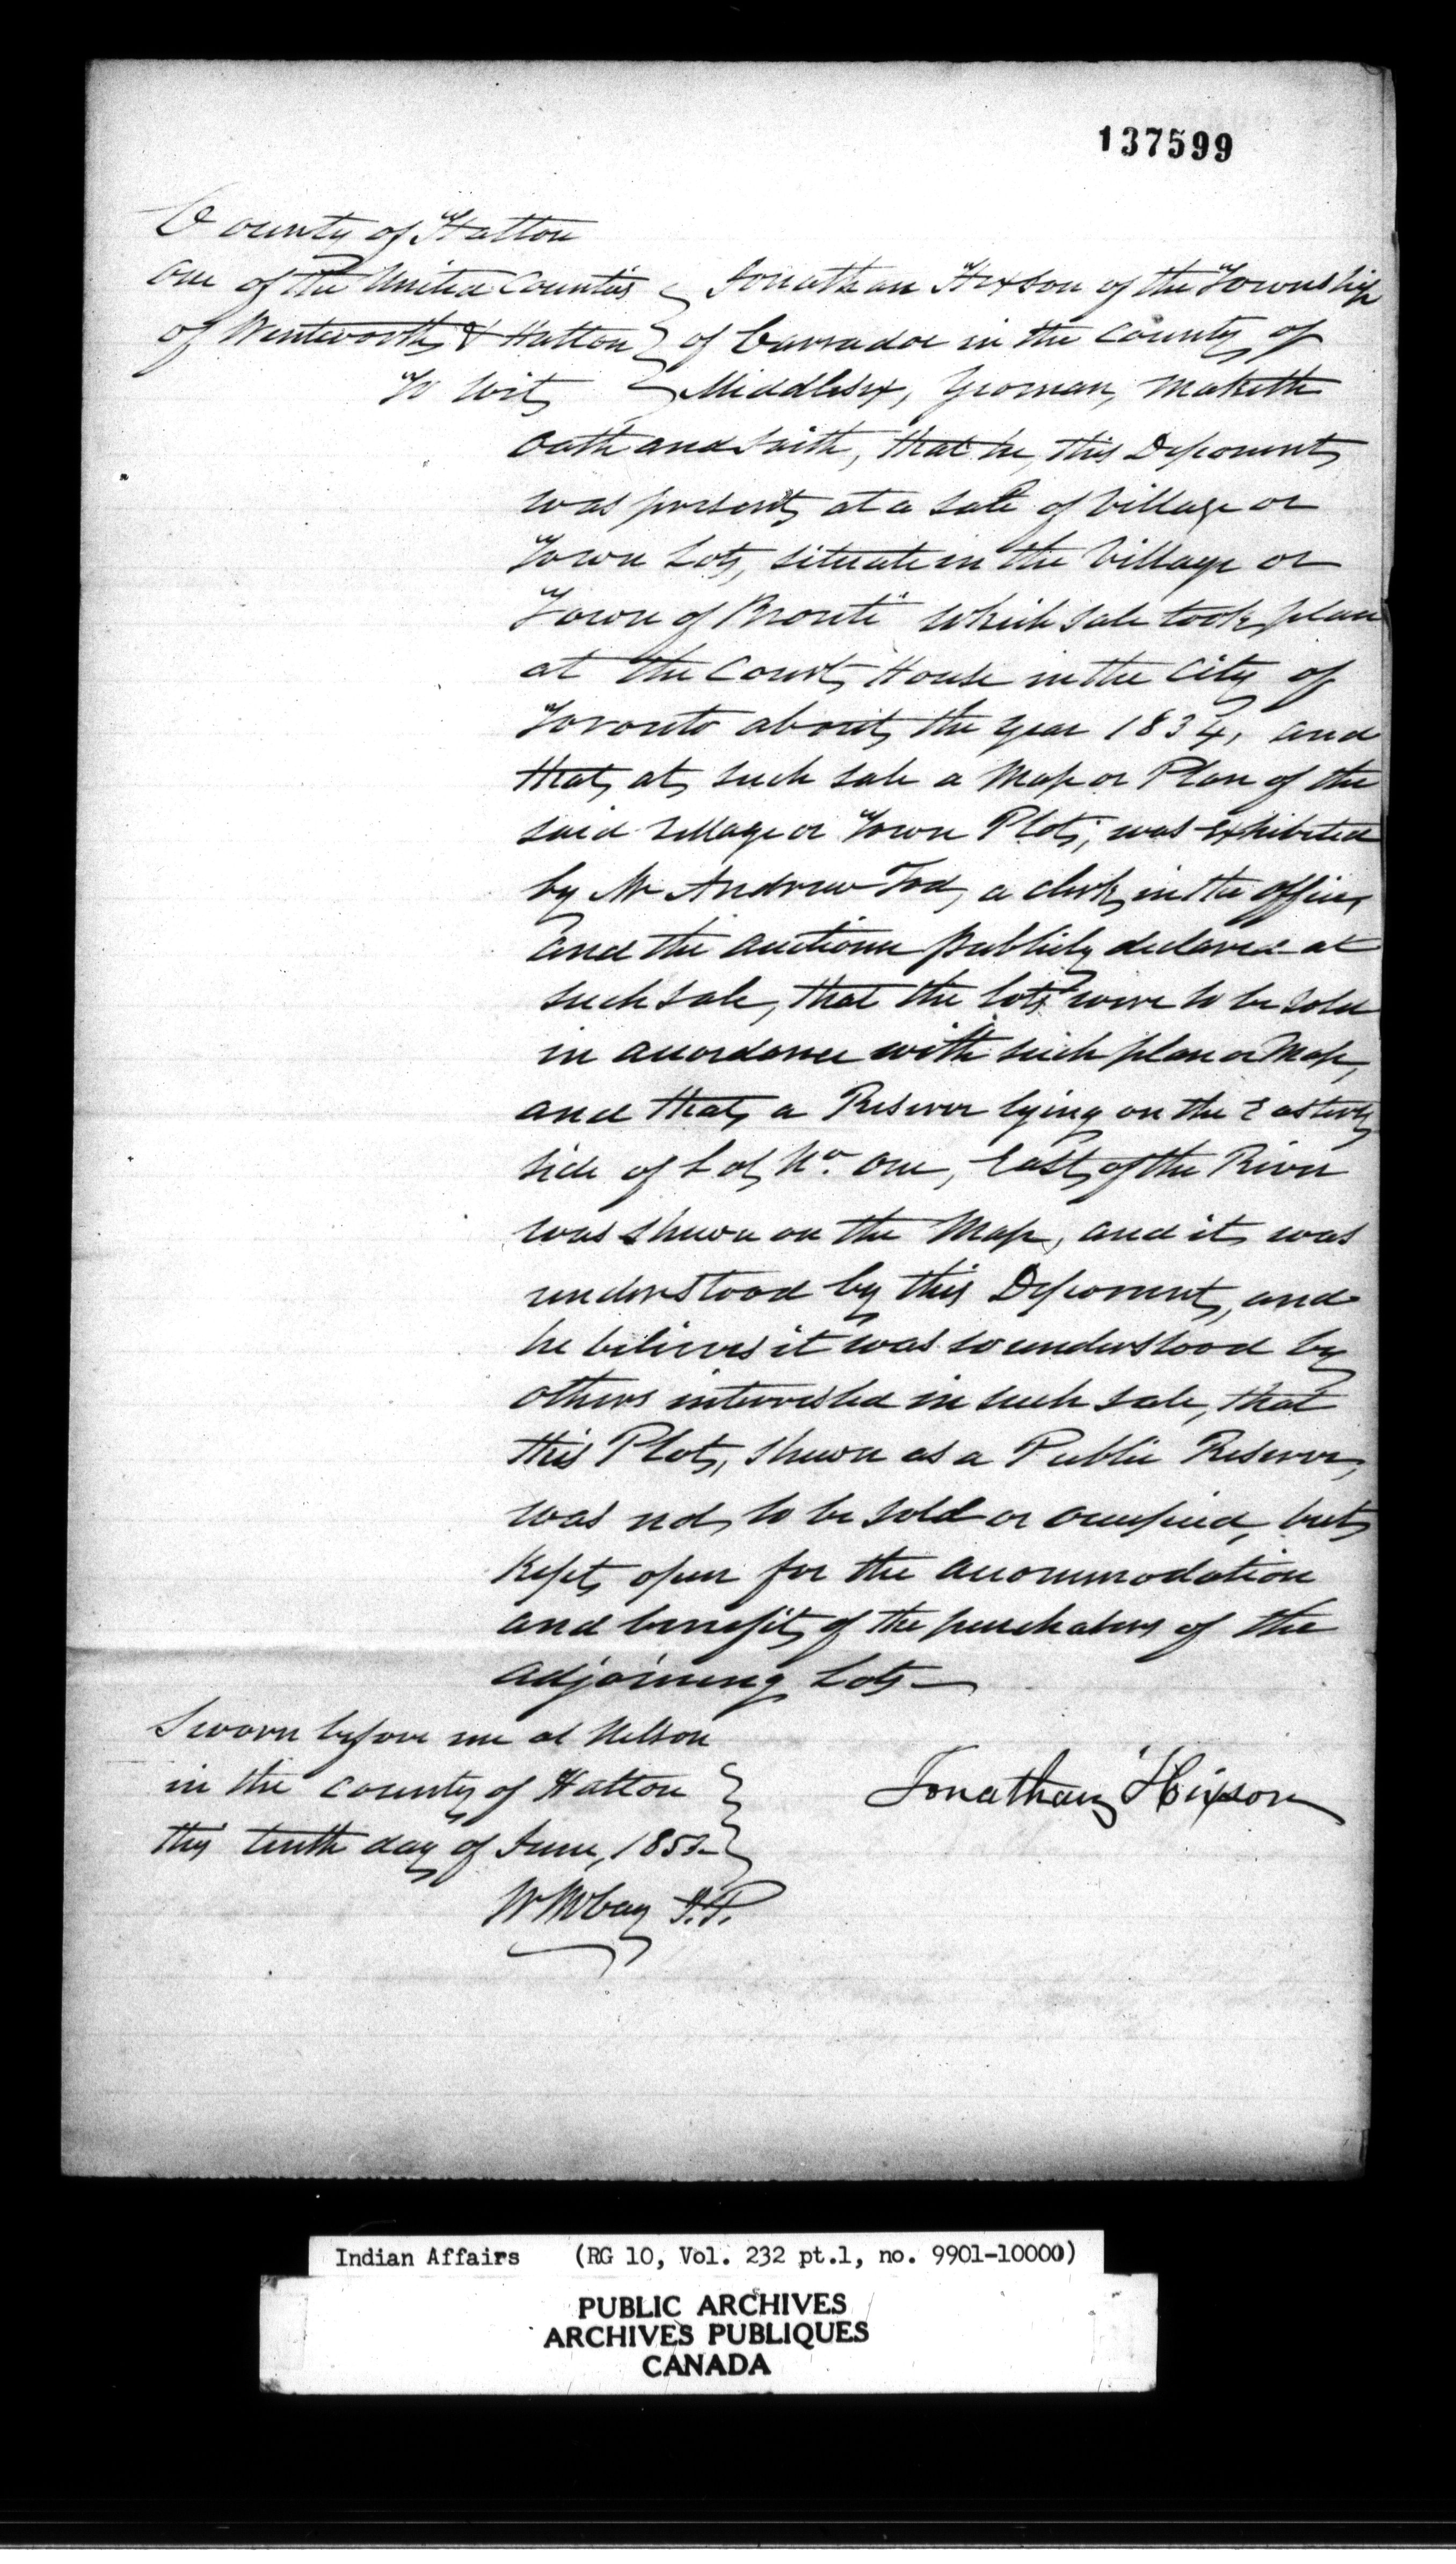 137599
County of Halton
One of the United Counties
of Wentworth & Halton
To Wit
Jonathan Hixson of the Township
of Carradoc in the County of
Middlesex, Yeoman, Maketh
Oath and saith, that he, this Deponent
was present at a sale of Village or
Town Lots, situate in the Village or
Town of Bronte" which sale took place
at the Court House in the City of
Toronto about the year 1834, and
that at such sale a Map or Plan of the
said Village or Town Plot, was exhibited
by Mr Andrew Tod, a clerk in the office,
and the auctioneer publicly declared at
such sale, that the lots were to be sold
in accordance with such plan or Map,
and that a Reserve lying on the Easterly
side of Lot No. One, East of the River
was shewn on the Map, and it was
understood by this Deponent, and
he believes it was so understood by
others interested in such sale, that
this Plot, shewn as a Public Reserve,
was not to be sold or occupied, but
kept open for the accommodation
and benefit of the purchasers of the
adjoining Lots—
Sworn before me at Nelson
in the County of Halton
this tenth day of June, 185
Jonathan Hixson
J.P.
Indian Affairs (RG 10, Vol. 232 pt.1, no. 9901-10000)
PUBLIC ARCHIVES
ARCHIVES PUBLIQUES
CANADA